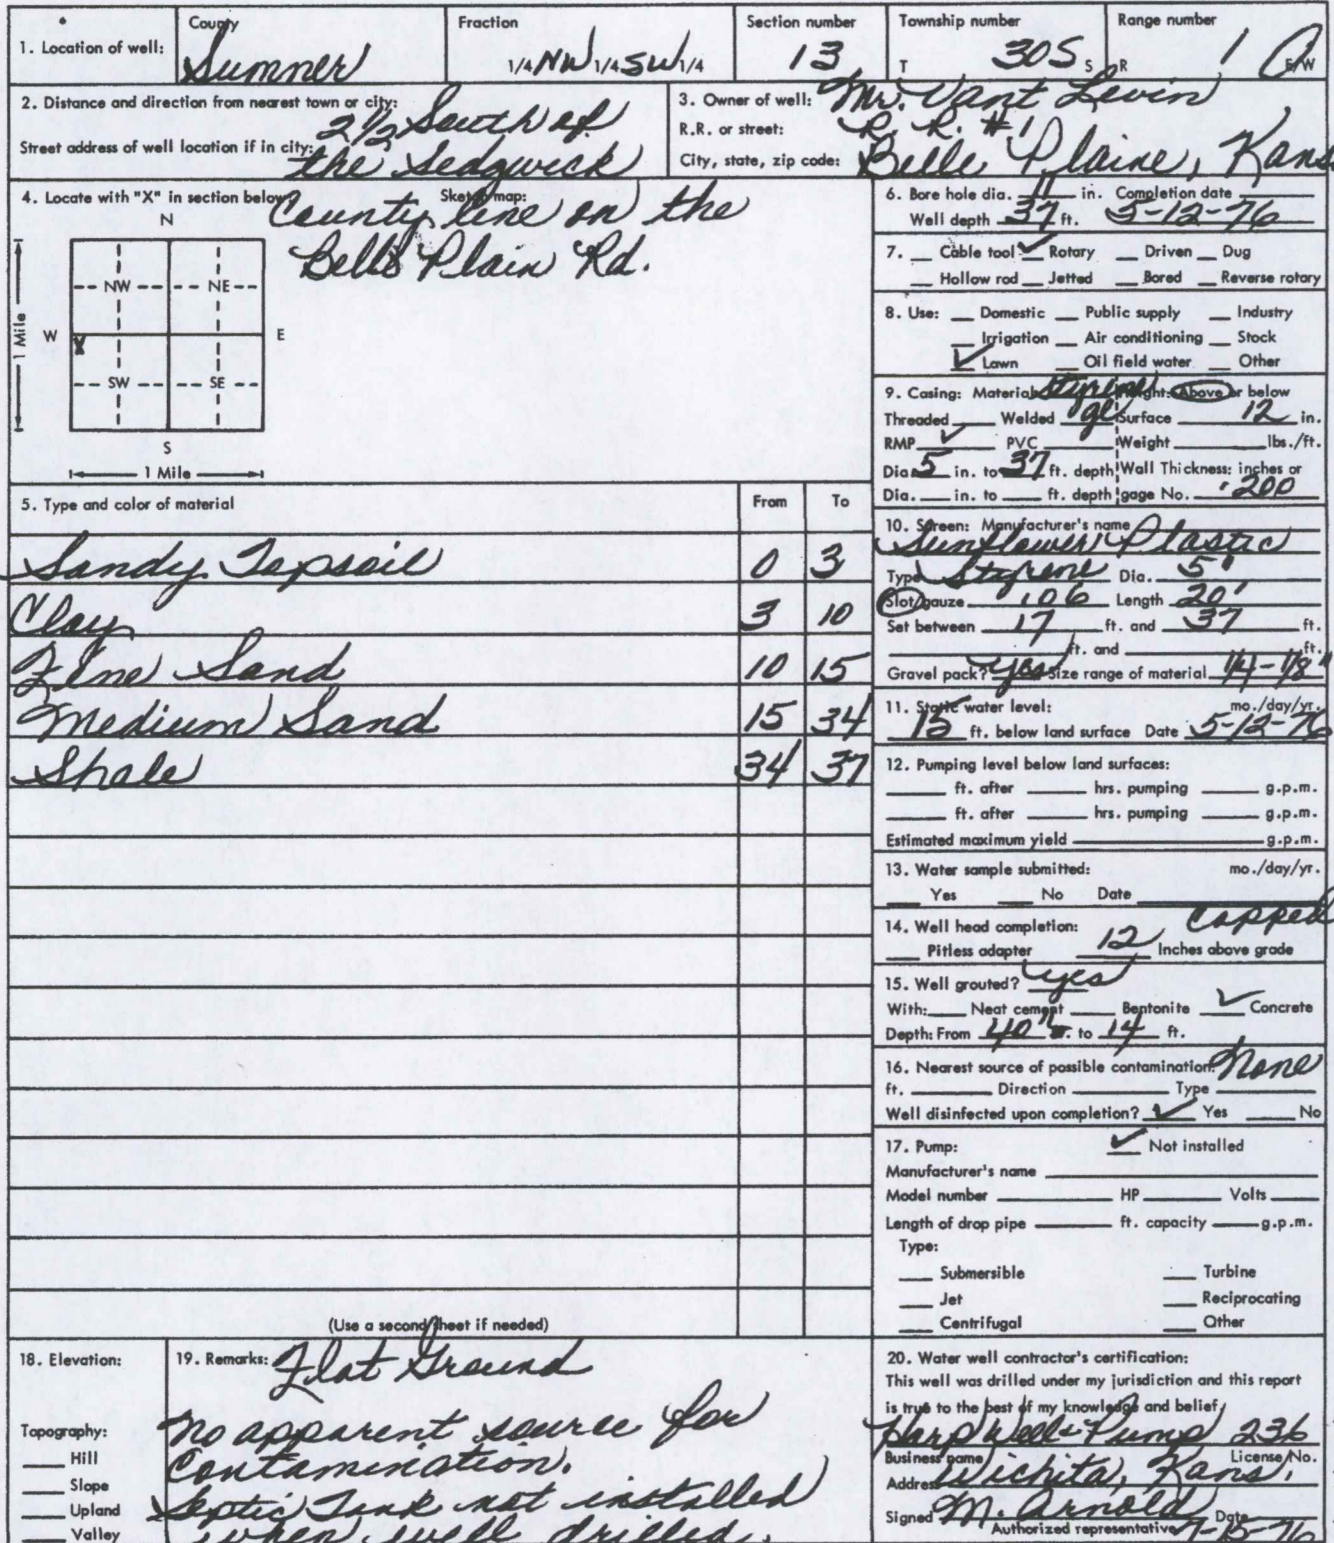 1. Location of well: County Sumner Fraction 1/4 NW 1/4 SW 1/4 Section number 13 Township number T 30S S Range number R 1 E/W
2. Distance and direction from nearest town or city: 2 1/2 South of
Street address of well location if in city: the Sedgwick
3. Owner of well: Mr. Vant Levin
R.R. or street: R. R. #1
City, state, zip code: Belle Plaine, Kans
4. Locate with "X" in section below: Sketch map: County line on the
Belle Plain Rd.
N
NW NE
W E
X
SW SE
S
1 Mile
1 Mile
5. Type and color of material From To
Sandy Topsoil 0 3
Clay 3 10
Fine Sand 10 15
Medium Sand 15 34
Shale 34 37
(Use a second sheet if needed)
6. Bore hole dia. 11 in. Completion date
Well depth 37 ft. 5-12-76
7. Cable tool ✓ Rotary Driven Dug
Hollow rod Jetted Bored Reverse rotary
8. Use: Domestic Public supply Industry
Irrigation Air conditioning Stock
✓ Lawn Oil field water Other
9. Casing: Material Styrene Height: Above or below
Threaded Welded gl Surface 12 in.
RMP ✓ PVC Weight lbs./ft.
Dia. 5 in. to 37 ft. depth Wall Thickness: inches or
Dia. in. to ft. depth gage No. .200
10. Screen: Manufacturer's name
Sunflower Plastic
Type Styrene Dia. 5"
Slot/gauze .106 Length 20'
Set between 17 ft. and 37 ft.
ft. and ft.
Gravel pack? Yes Size range of material 1/4-1/8"
11. Static water level: mo./day/yr.
15 ft. below land surface Date 5-12-76
12. Pumping level below land surfaces:
ft. after hrs. pumping g.p.m.
ft. after hrs. pumping g.p.m.
Estimated maximum yield g.p.m.
13. Water sample submitted: mo./day/yr.
Yes No Date
14. Well head completion: Capped
Pitless adapter 12 Inches above grade
15. Well grouted? yes
With: Neat cement Bentonite ✓ Concrete
Depth: From 40" to 14 ft.
16. Nearest source of possible contamination: None
ft. Direction Type
Well disinfected upon completion? ✓ Yes No
17. Pump: ✓ Not installed
Manufacturer's name
Model number HP Volts
Length of drop pipe ft. capacity g.p.m.
Type:
Submersible Turbine
Jet Reciprocating
Centrifugal Other
18. Elevation:
Topography:
Hill
Slope
Upland
Valley
19. Remarks: Flat Ground
No apparent source for
Contamination.
Septic Tank not installed
when well drilled.
20. Water well contractor's certification:
This well was drilled under my jurisdiction and this report
is true to the best of my knowledge and belief.
Harp Well & Pump 236
Business name License No.
Address Wichita, Kans.
Signed M. Arnold Date 7-15-76
Authorized representative